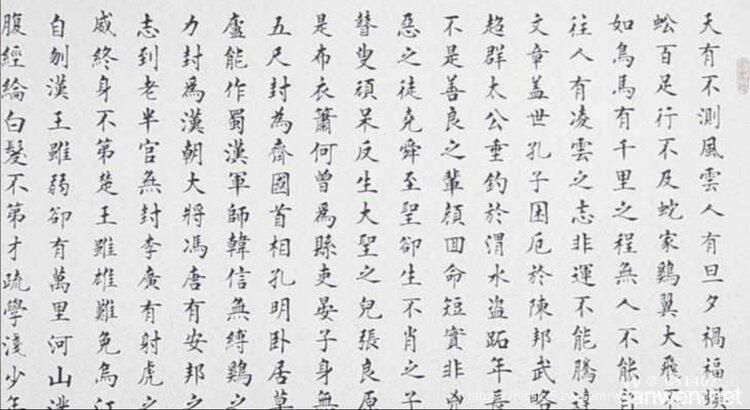 天有不測風雲人有旦夕禍福蜈
蚣百足行不及蛇家鷄翼大飛
如鳥馬有千里之程無人不能
往人有凌雲之志非運不能騰達
文章蓋世孔子困厄於陳邦武畧
超群太公垂釣於渭水盜跖年長
不是善良之輩顔回命短實非兇
惡之徒堯舜至聖卻生不肖之子
瞽叟頑呆反生大聖之兒張良原
是布衣蕭何曾爲縣吏晏子身無
五尺封爲齊國首相孔明卧居草
廬能作蜀漢軍師韓信無縛鷄之
力封爲漢朝大將馮唐有安邦之
志到老半官無封李廣有射虎之
威終身不第楚王雖雄難免烏江
自刎漢王雖弱卻有萬里河山滿
腹經綸白髮不第才疏學淺少年
sanwen.net